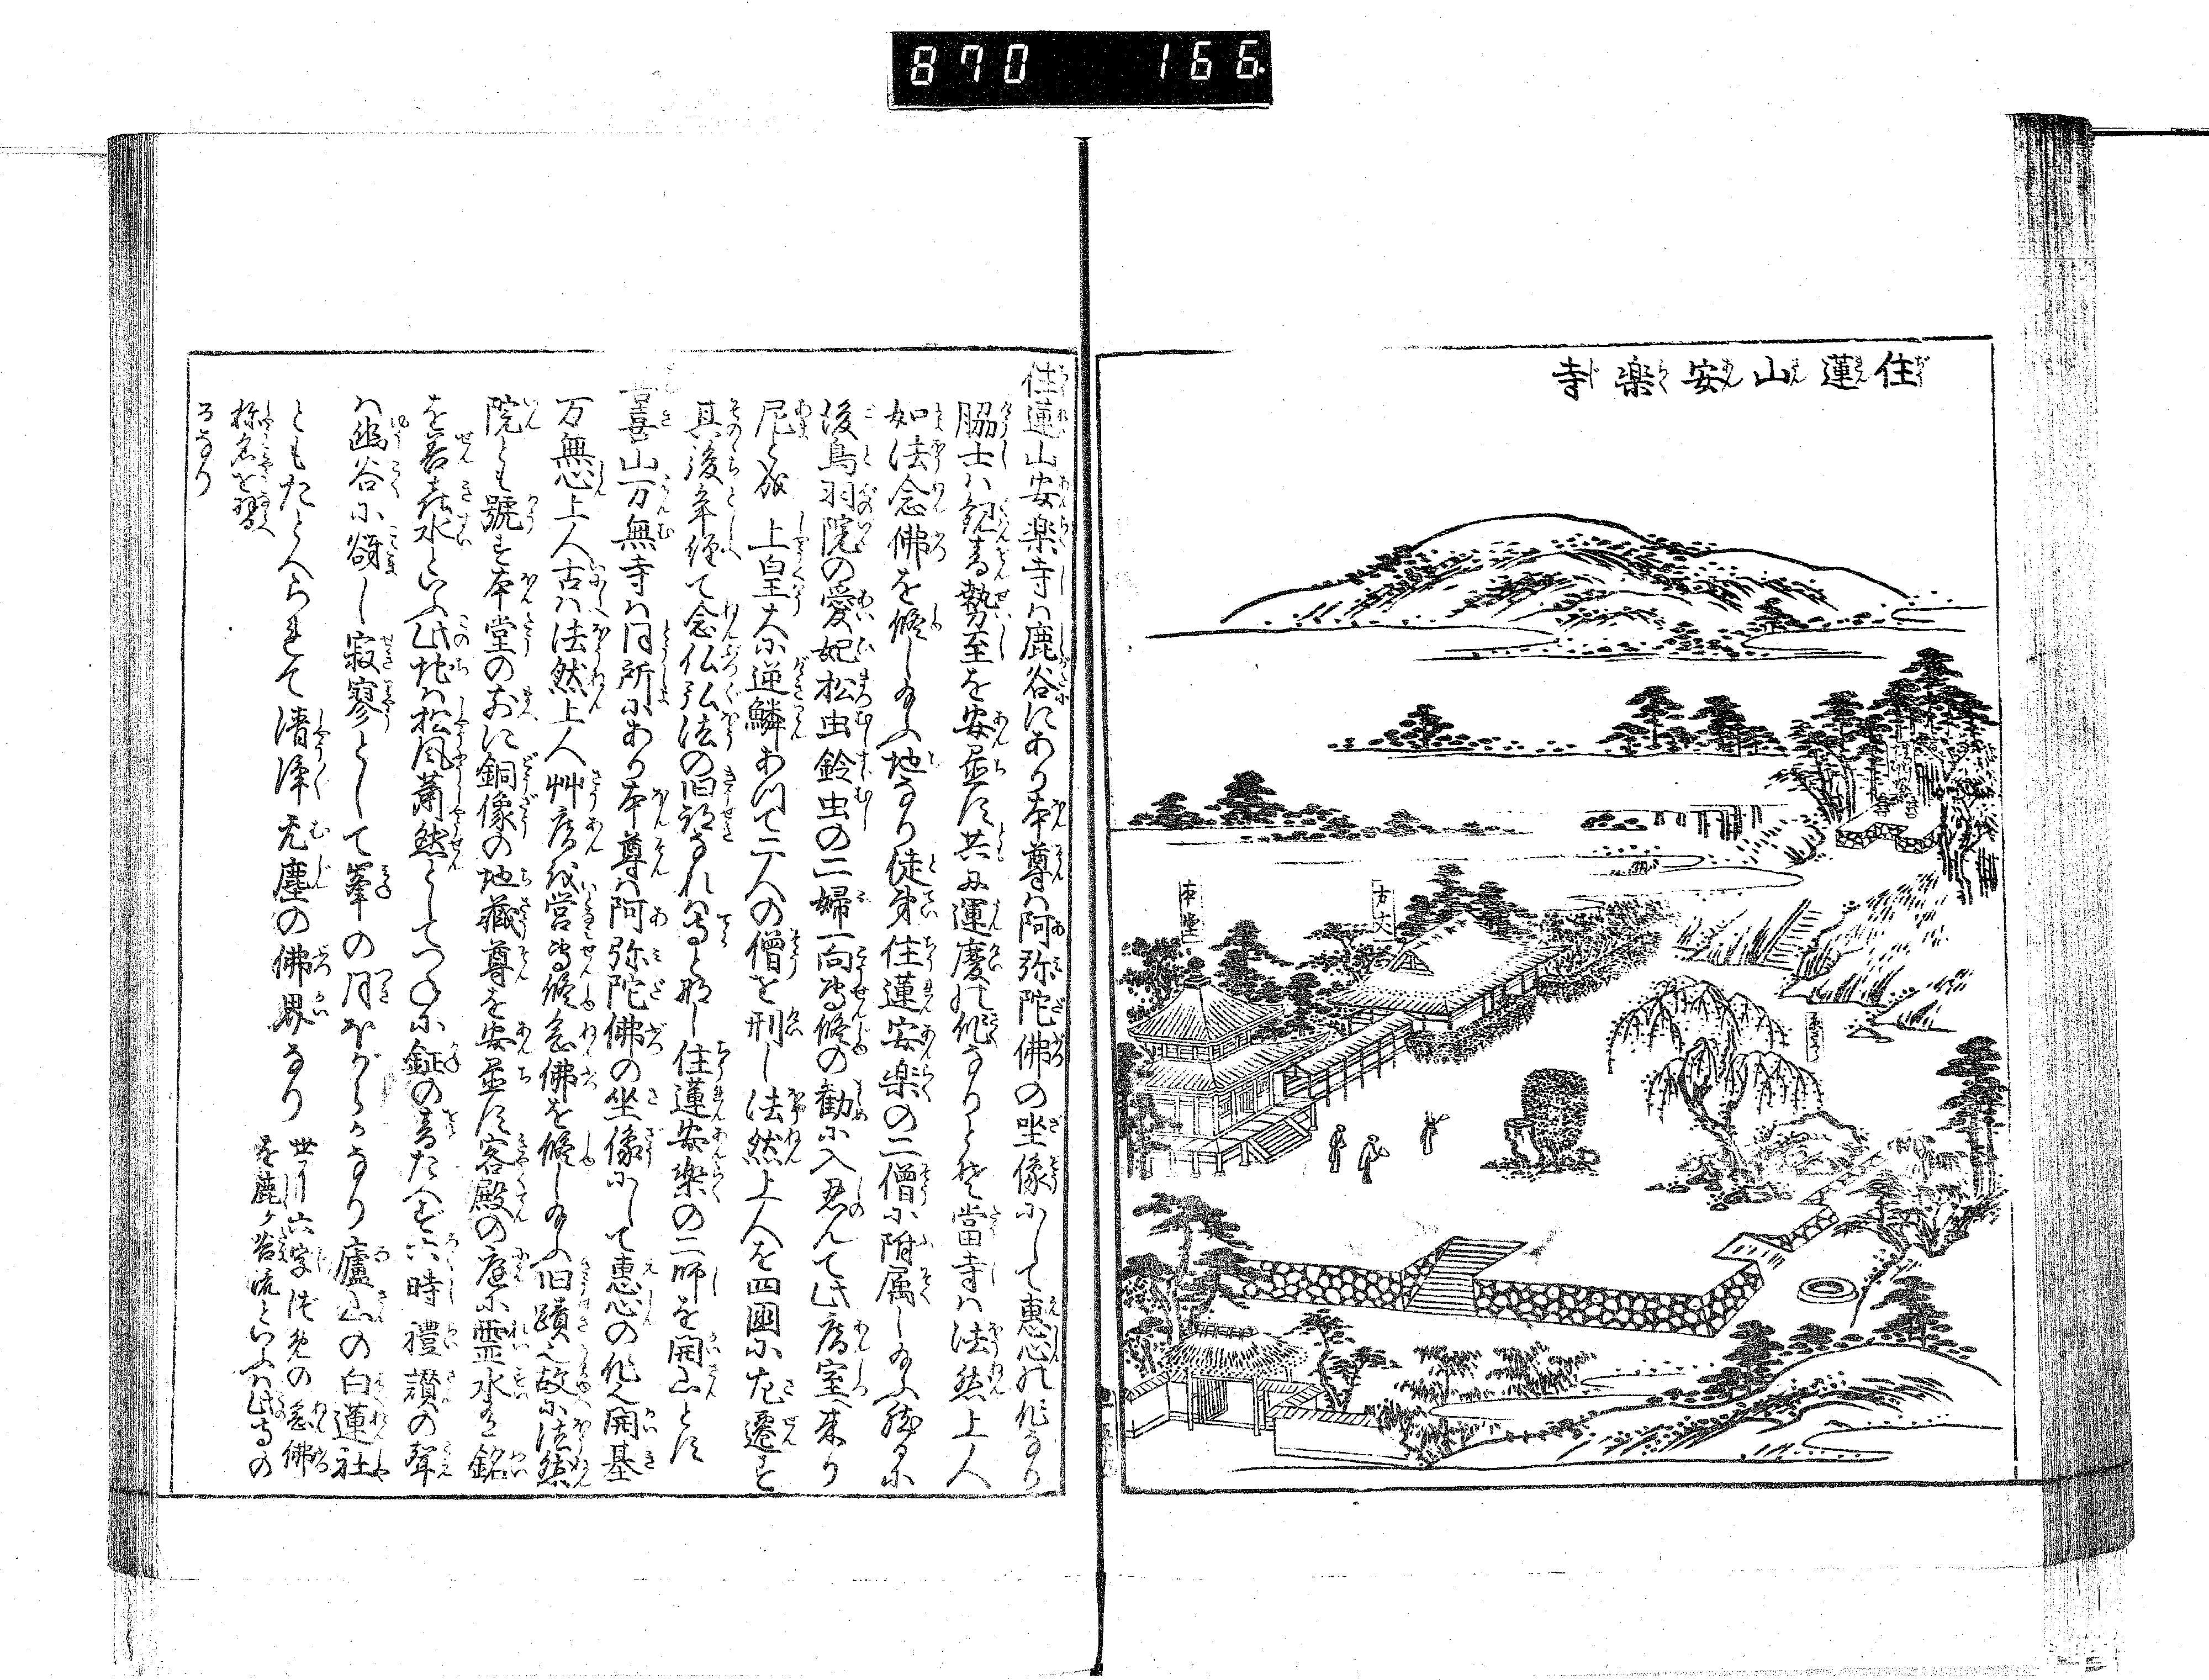 870 166
住蓮山安楽寺
本堂
方丈
住蓮山安楽寺は鹿谷にあり本尊は阿弥陀佛の坐像にして惠心の作なり
脇士は観音勢至を安置す共に運慶の作なりとぞ當寺は法然上人
如法念佛を修し給ふ地なり徒弟住蓮安楽の二僧に附属し給ふ然るに
後鳥羽院の愛妃松虫鈴虫の二婦一向専修の勧に入忍んで此庵室へ来り
尼と成 上皇大に逆鱗あつて二人の僧を刑し法然上人を四國に左遷す
其後年經て念仏弘法の旧跡なれは寺と成し住蓮安楽の二師を開山とす
善喜山万無寺は同所にあり本尊は阿弥陀佛の坐像にして惠心の作也開基
万無心上人古は法然上人艸庵を営専修念佛を修し給ふ旧蹟也故に法然
院とも號す本堂のまへに銅像の地藏尊を安置す客殿の庭に霊水有銘
を善喜水といふ此地は松風蕭然としてつねに鉦の音たへず六時禮讃の聲
は幽谷に谺し寂寥として峯の月ほがらかなり廬山の白蓮社
ともたとへられて清浄无塵の佛界なり
世に六字づめの念佛
を鹿ケ谷流といふは此寺の
称名を習へ
るなり